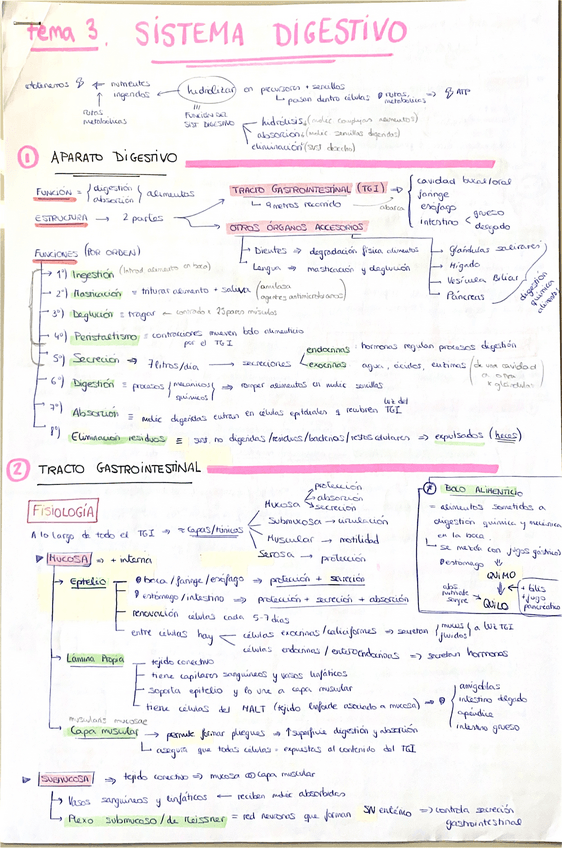 tema 3. SISTEMA DIGESTIVO
nutrientes ingeridos
hidrolizar en precursores + sencillos
pasan dentro células rutas metabólicas ⇒ ATP
rutas metabólicas
FUNCIÓN DEL SIST DIGESTIVO
hidrólisis (moléc complejas alimentos)
absorción (moléc sencillas digeridas)
eliminación (sust desecho)
1 APARATO DIGESTIVO
FUNCIÓN = digestión absorción alimentos
ESTRUCTURA → 2 partes
TRACTO GASTROINTESTINAL (TGI) ⇒
9 metros recorrido
abarca
cavidad bucal/oral
faringe
esófago
intestino grueso delgado
OTROS ÓRGANOS ACCESORIOS
Dientes ⇒ degradación física alimentos
Lengua ⇒ masticación y deglución
Glándulas salivares
Hígado
Vesícula Biliar
Páncreas
digestión química alimentos
FUNCIONES (POR ORDEN)
1º) Ingestión (introd alimento en boca)
2º) Masticación = triturar alimento + saliva (amilasa agentes antimicrobianos)
3º) Deglución = tragar ← controlado x 25 pares músculos
4º) Peristaltismo = contracciones mueven bolo alimenticio por el TGI
5º) Secreción ⇒ 7 litros/día → secreciones
endocrinas: hormonas regulan procesos digestión
exocrinas: agua, ácidos, enzimas (de una cavidad a otra x glándulas)
6º) Digestión = procesos (mecánicos químicos) ⇒ romper alimentos en moléc sencillas
7º) Absorción = moléc digeridas entran en células epiteliales y recubren luz del TGI
8º) Eliminación residuos ≡ sust no digeridas/residuos/bacterias/restos celulares ⇒ expulsados (heces)
2 TRACTO GASTROINTESTINAL
FISIOLOGÍA
A lo largo de todo el TGI ⇒ = capas/túnicas
Mucosa protección absorción secreción
Submucosa → circulación
Muscular → motilidad
Serosa → protección
* BOLO ALIMENTICIO
= alimentos sometidos a digestión química y mecánica en la boca.
se mezcla con jugos gástricos estómago
QUIMO
+ bilis + jugo pancreático
QUILO
abs nutrientes sangre
MUCOSA ⇒ + interna
Epitelio
boca/faringe/esófago ⇒ protección + secreción
estómago/intestino ⇒ protección + secreción + absorción
renovación células cada 5-7 días
entre células hay
células exocrinas/caliciformes ⇒ secretan (mucus fluidos) a luz TGI
células endocrinas/enteroendocrinas ⇒ secretan hormonas
Lámina Propia
tejido conectivo
tiene capilares sanguíneos y vasos linfáticos
soporta epitelio y lo une a capa muscular
tiene células del MALT (tejido linfoide asociado a mucosa) ⇒
amígdalas
intestino delgado
apéndice
intestino grueso
muscularis mucosae
Capa muscular → permite formar pliegues ⇒ ↑ superficie digestión y absorción
asegura que todas células = expuestas al contenido del TGI
SUBMUCOSA ⇒ tejido conectivo ⇒ mucosa ∞ capa muscular
Vasos sanguíneos y linfáticos ← reciben moléc absorbidas
Plexo submucoso/de Meissner = red neuronas que forman SN entérico ⇒ controla secreción gastrointestinal